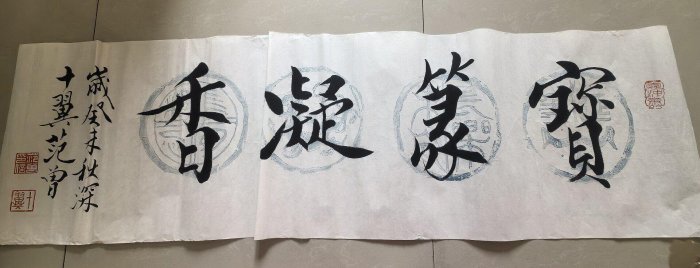 寶篆凝香
歲癸未秋深
十翼范曾